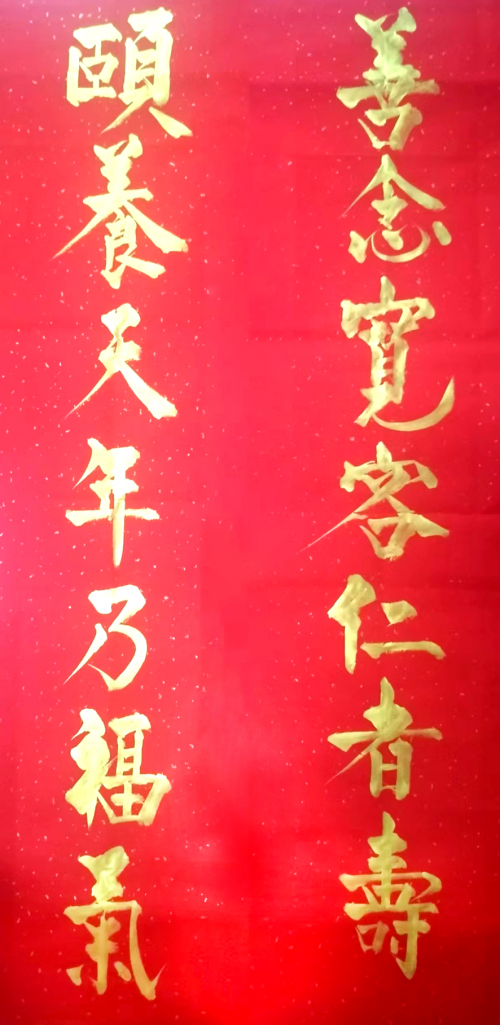 善念寬客仁者壽
頤養天年乃福氣